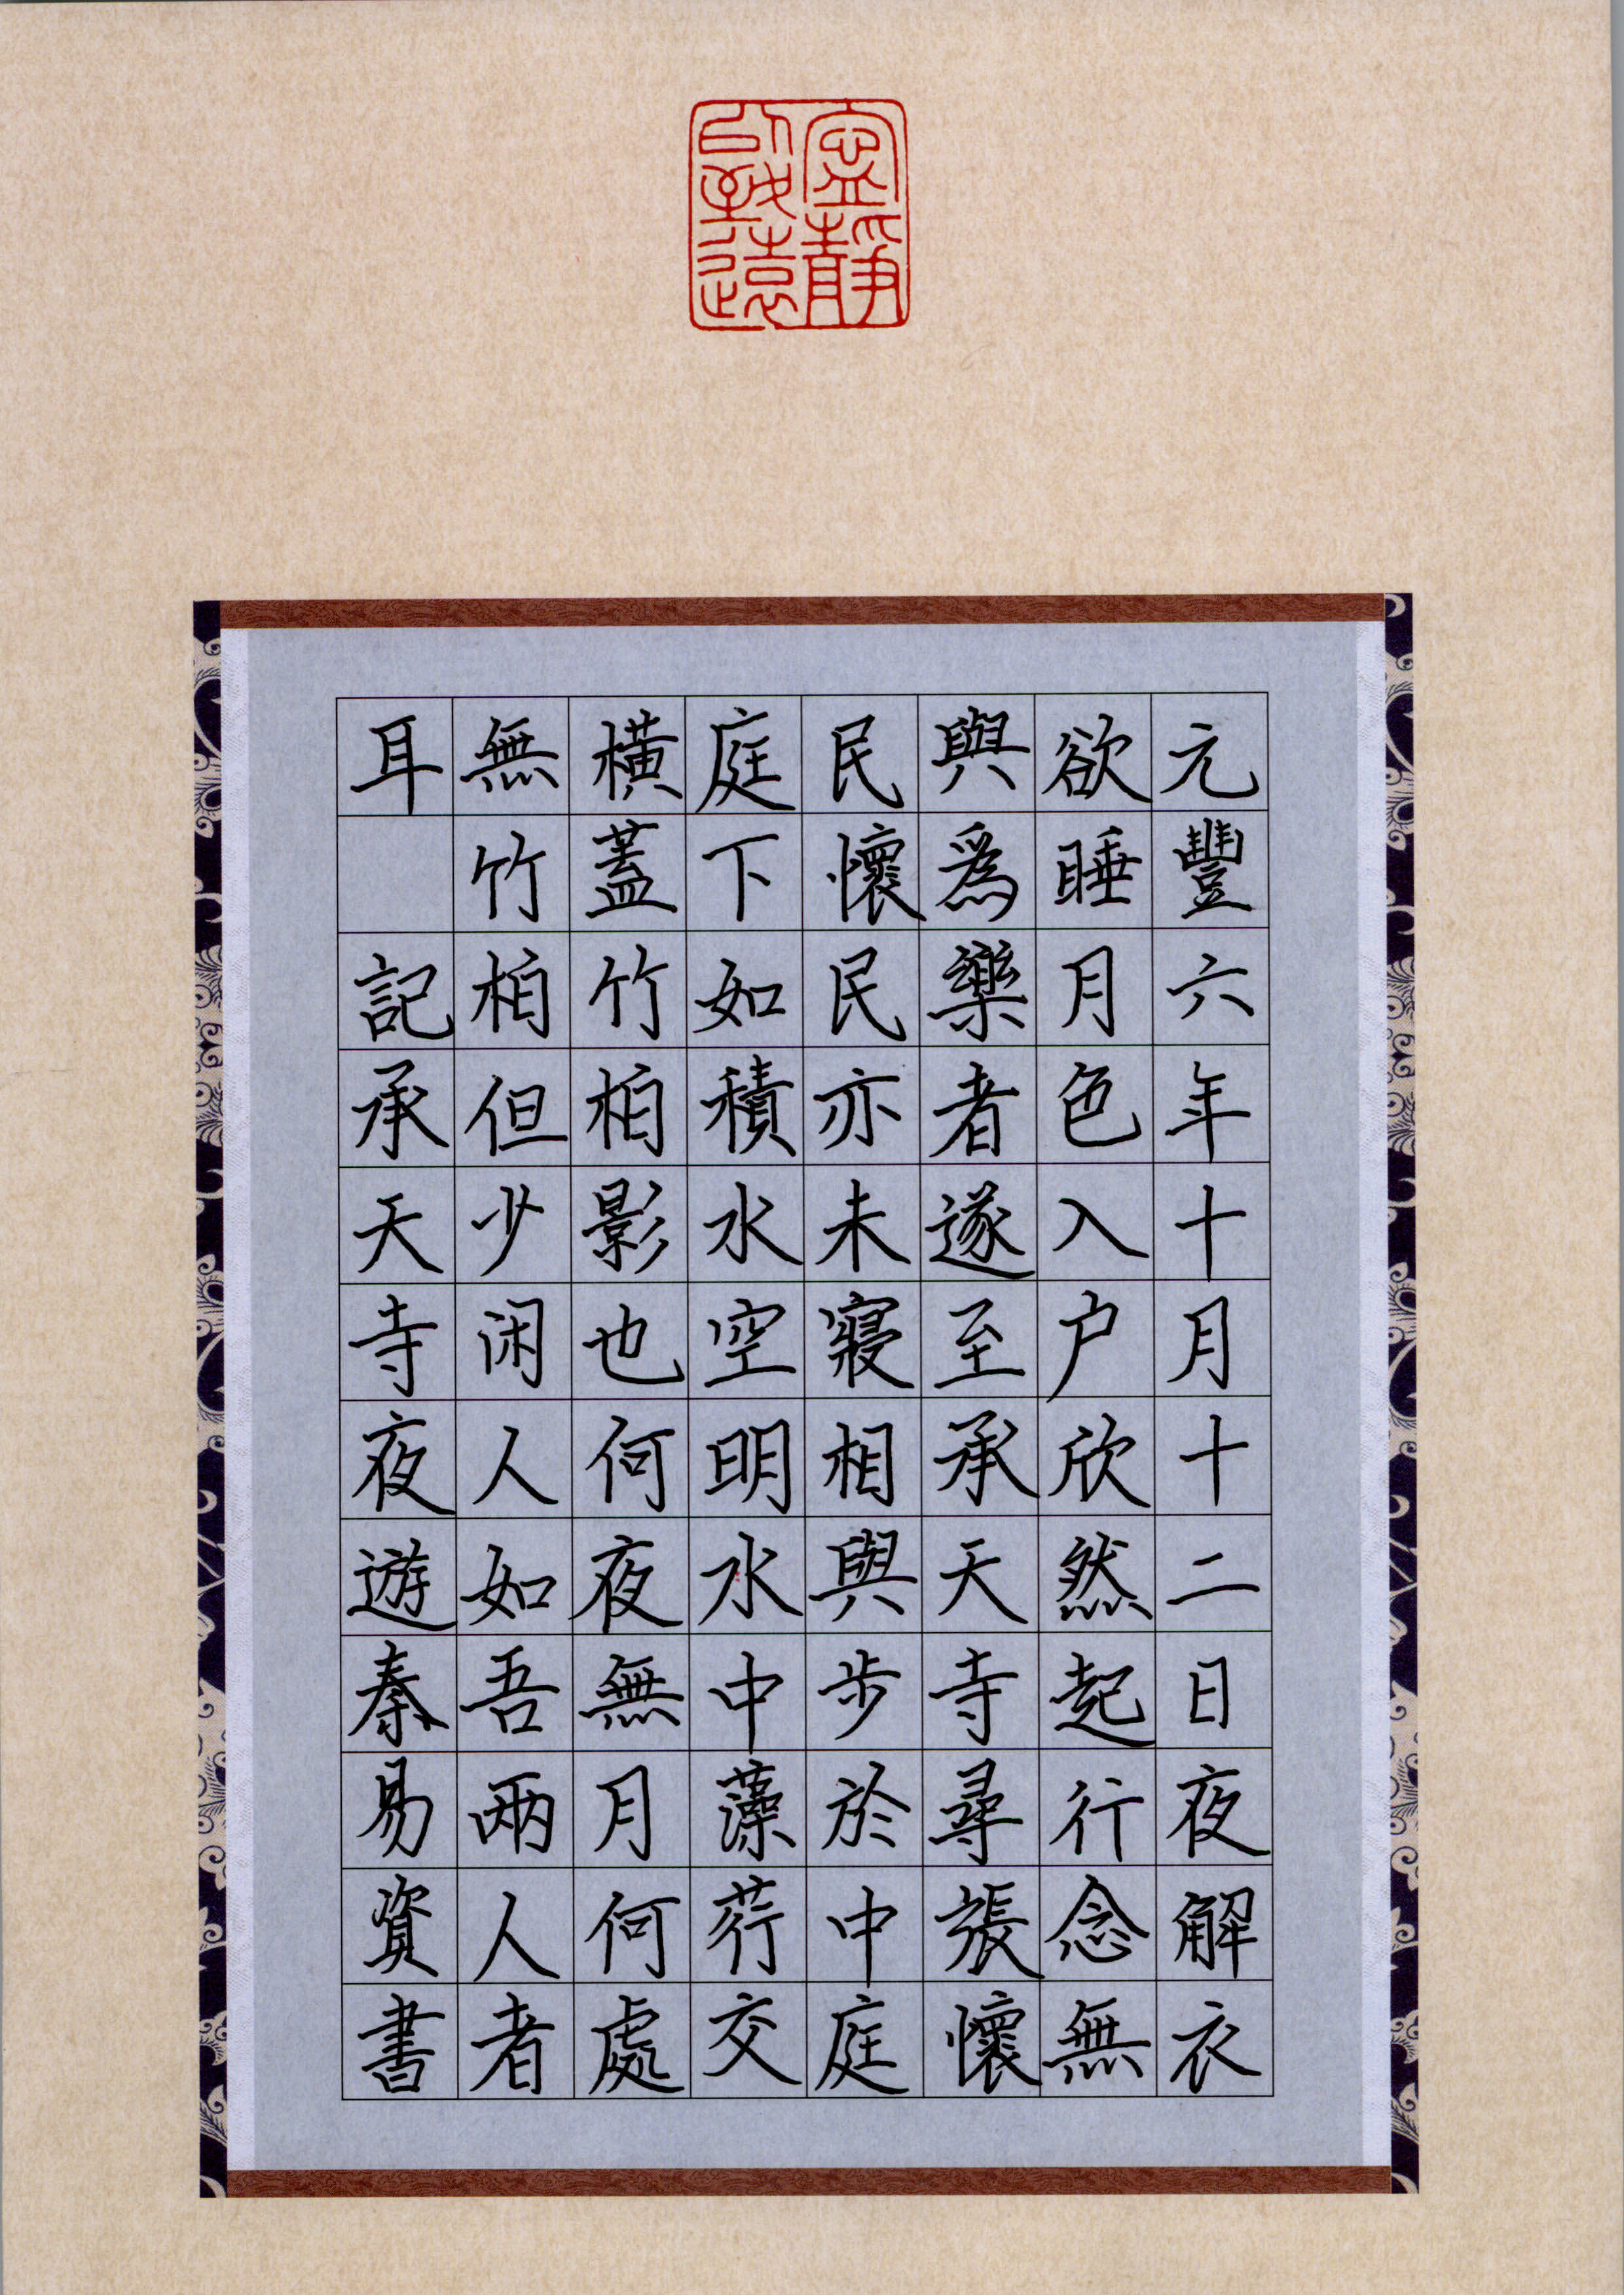 寧靜
以致遠
元豐六年十月十二日夜解衣
欲睡月色入户欣然起行念無
與爲樂者遂至承天寺尋張懷
民懷民亦未寢相與步於中庭
庭下如積水空明水中藻荇交
橫蓋竹柏影也何夜無月何處
無竹柏但少闲人如吾兩人者
耳 記承天寺夜遊秦易資書